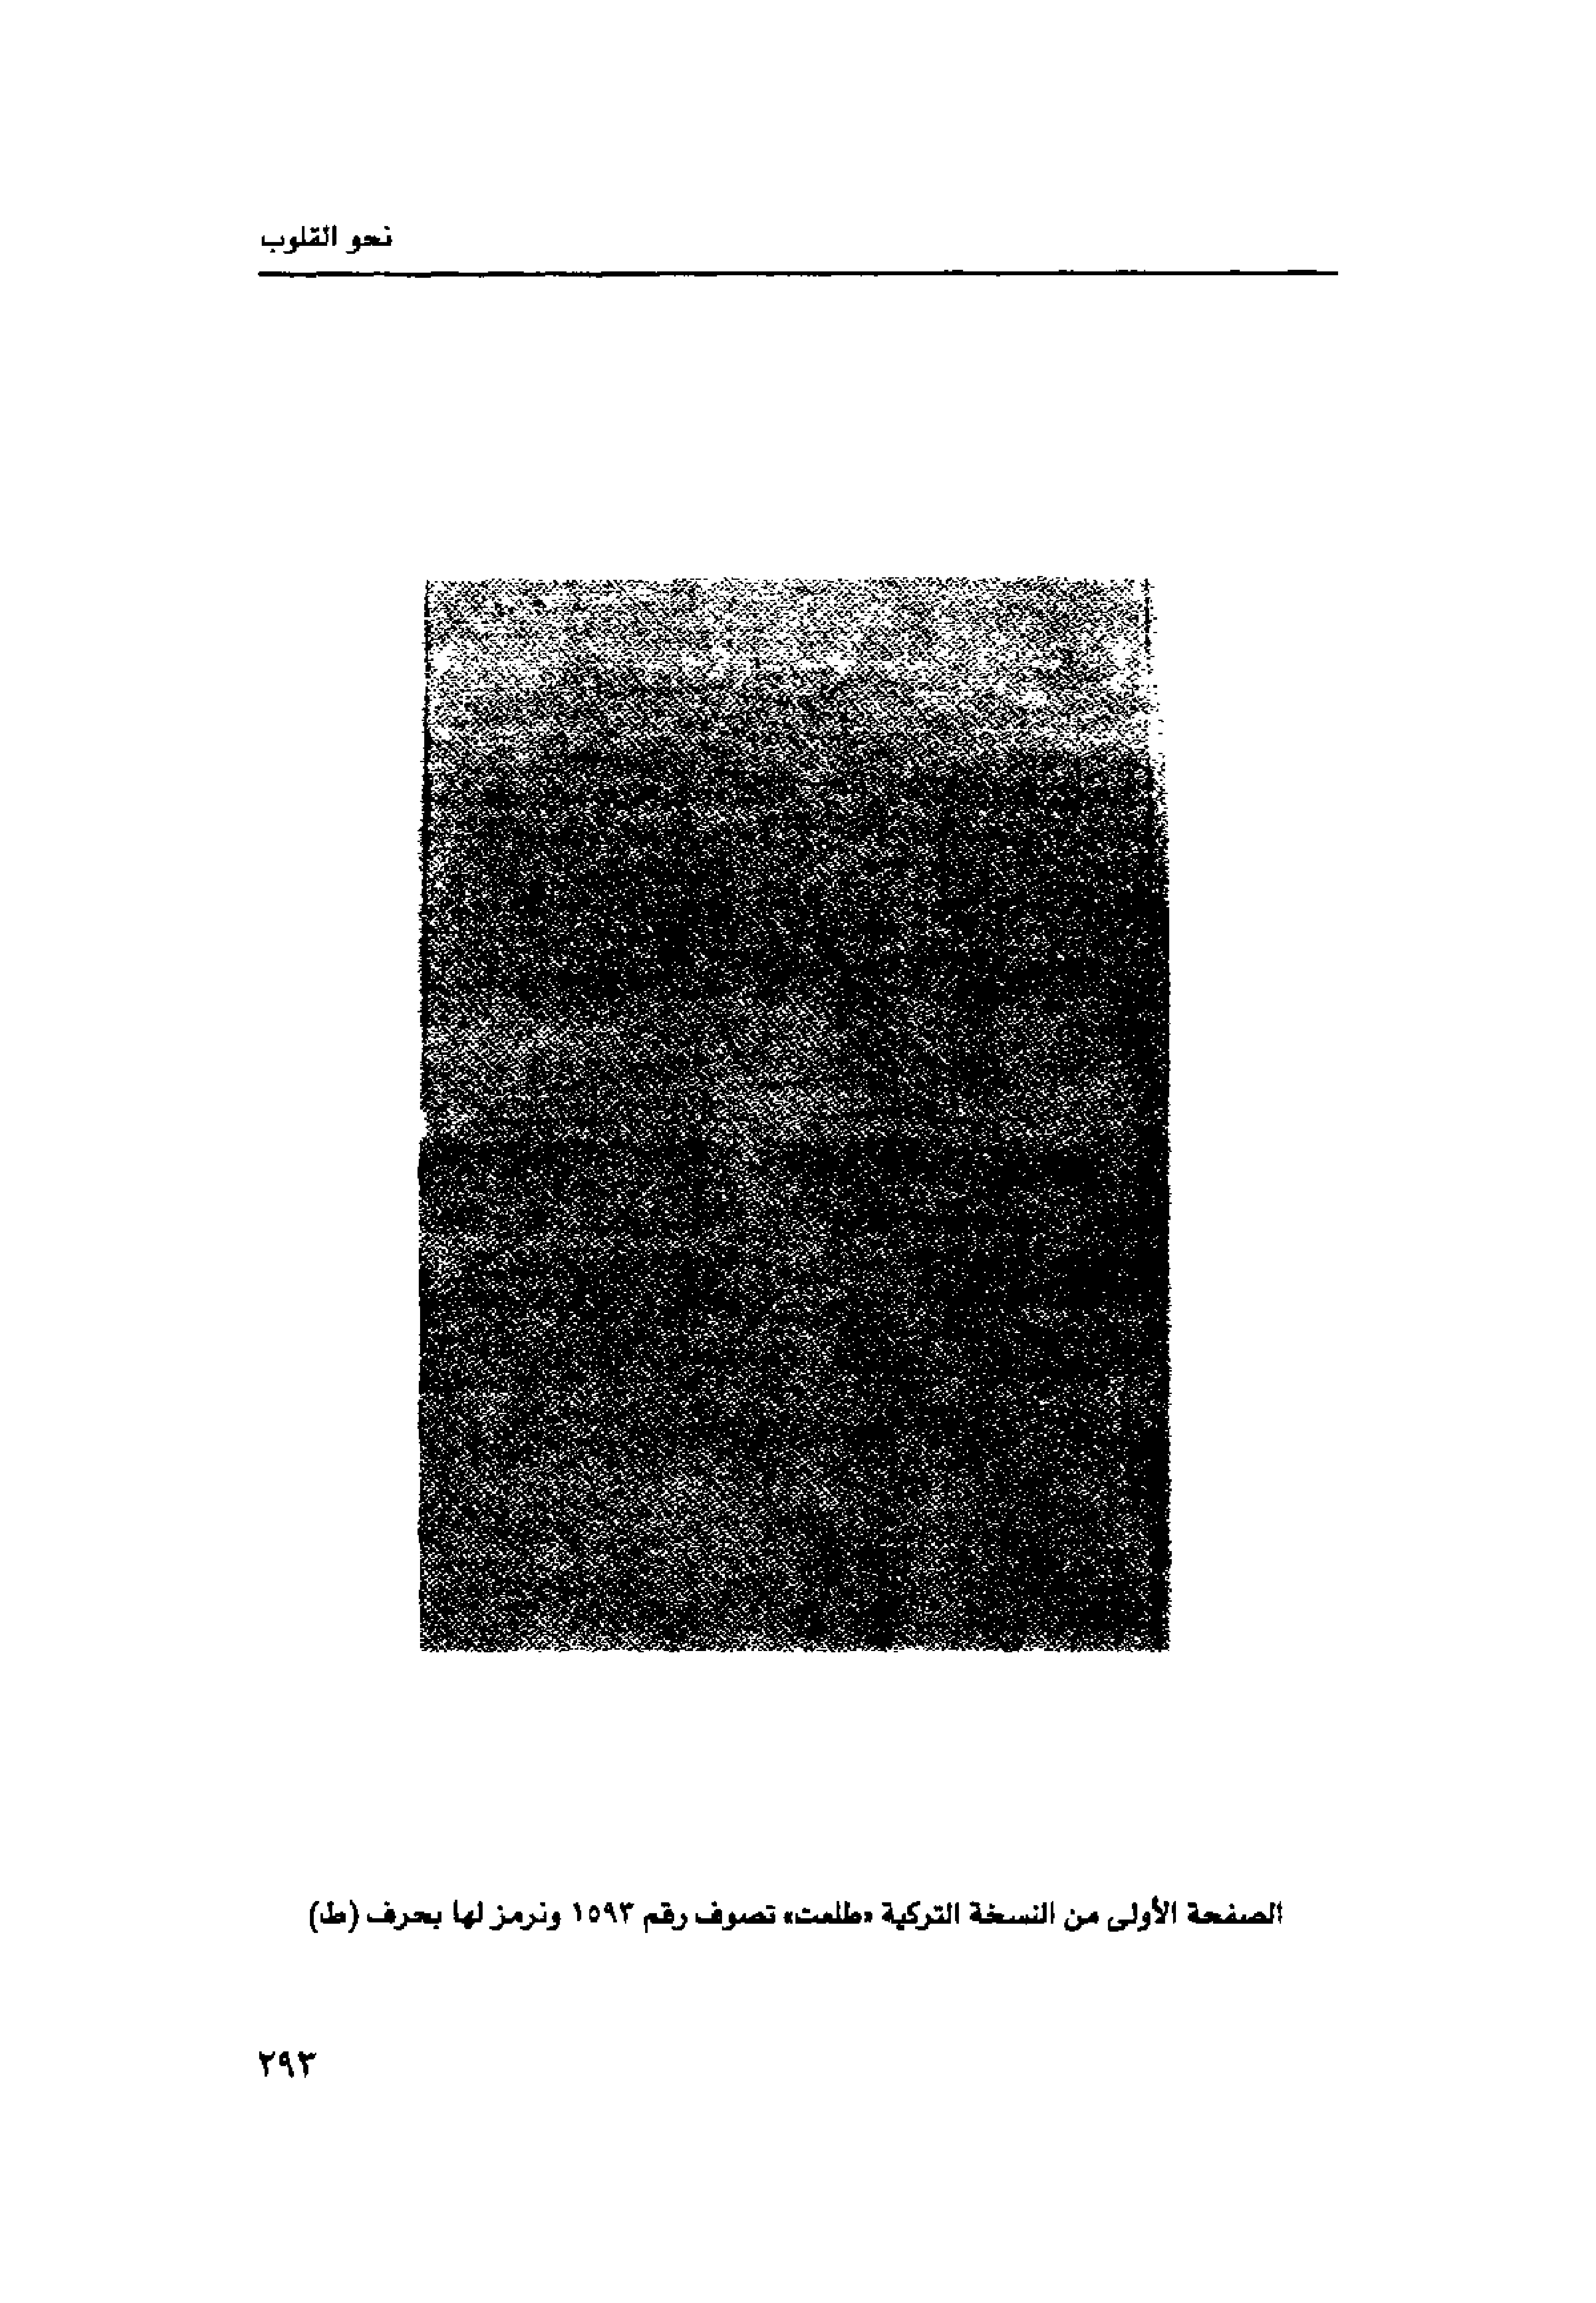 نحو القلوب
الصفحة الأولى من النسخة التركية «طلعت» تصوف رقم ١٥٩٣ ونرمز لها بحرف (ط)
٢٩٣